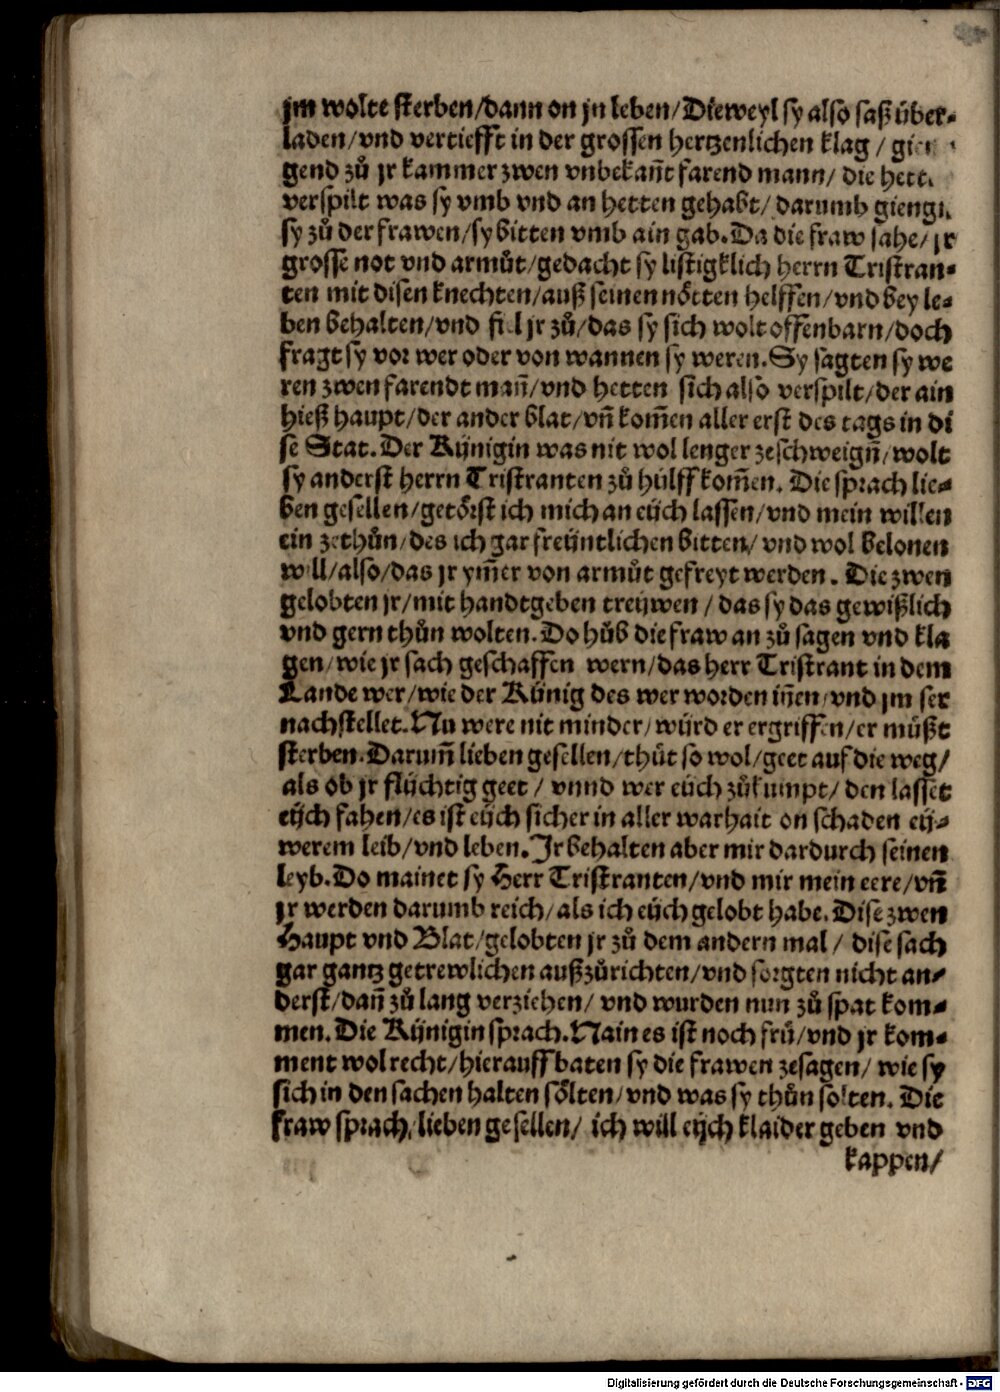 jm wolte sterben/dann on jn leben/Dieweyl sy also saß über-
laden/vnd vertiefft in der grossen hertzenlichen klag /
gend zů jr kammer zwen vnbekañt farend mann/ die
verspilt was sy vmb vnd an hetten gehabt/ darumb
sy zů der frawen/sy bitten vmb ain gab. Da die fraw sahe/ jr
grosse not vnd armůt/gedacht sy listigklich herrn Tristran-
ten mit disen knechten/auß seinen nötten helffen/vnd bey le-
ben behalten/vnd fiel jr zů/das sy sich wolt offenbarn/doch
fragt sy vor wer oder von wannen sy weren. Sy sagten sy we
ren zwen farendt mañ/vnd hetten sich also verspilt/der ain
hieß haupt/der ander blat/vñ kom̃en aller erst des tags in di
se Stat. Der Künigin was nit wol lenger zeschweigñ/wolt
sy anderst herrn Tristranten zů hülff kom̃en. Die sprach lie-
ben gesellen/getörst ich mich an eüch lassen/vnd mein willen
ein zethůn/des ich gar freüntlichen bitten/ vnd wol belonen
will/also/das jr ym̃er von armůt gefreyt werden. Die zwen
gelobten jr/mit handtgeben treüwen / das sy das gewißlich
vnd gern thůn wolten. Do hůb die fraw an zů sagen vnd kla
gen/wie jr sach geschaffen wern/das herr Tristrant in dem
Lande wer/wie der Künig des wer worden iñen/vnd jm ser
nachstellet. Nu were nit minder/würd er ergriffen/er müßt
sterben. Darum̃ lieben gesellen/thůt so wol/geet auf die weg/
als ob jr flüchtig geet / vnnd wer eüch zůkumpt/ den lasset
eüch fahen/es ist eüch sicher in aller warhait on schaden eü-
werem leib/vnd leben. Ir behalten aber mir dardurch seinen
leyb. Do mainet sy Herr Tristranten/vnd mir mein eere/vñ
jr werden darumb reich/als ich eüch gelobt habe. Dise zwen
Haupt vnd Blat/gelobten jr zů dem andern mal / dise sach
gar gantz getrewlichen außzůrichten/vnd sorgten nicht an-
derst/dañ zů lang verziehen/ vnd wurden nun zů spat kom-
men. Die Künigin sprach. Nain es ist noch frů/vnd jr kom-
ment wol recht/hierauff baten sy die frawen zesagen/ wie sy
sich in den sachen halten sölten/vnd was sy thůn solten. Die
fraw sprach/ lieben gesellen/ ich will eüch klaider geben vnd
kappen/
Digitalisierung gefördert durch die Deutsche Forschungsgemeinschaft - DFG